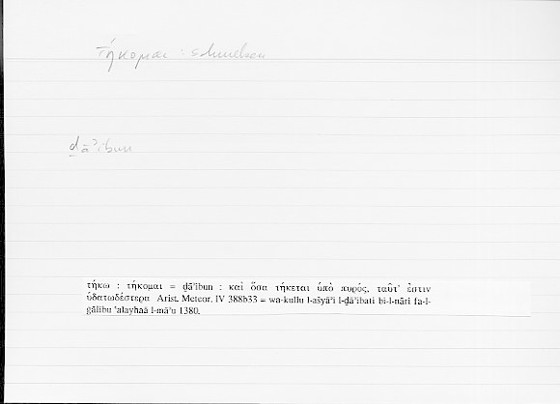 τήκομαι : schmelzen
ḏāʾibun
τήκω : τήκομαι = ḏāʾibun : καὶ ὅσα τήκεται ὑπὸ πυρός, ταῦτ’ ἐστιν
ὑδατωδέστερα Arist. Meteor. IV 388b33 = wa-kullu l-ašyāʾi l-ḏāʾibati bi-l-nāri fa-l-
ġālibu ʿalayhaā l-māʾu 1380.